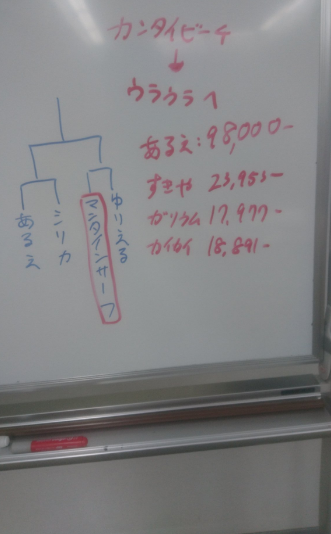 カンタイビーチ
↓
ウラウラへ
あるえ:98,000-
すきや 23,955-
ガリウム 17,977-
カイカイ 18,891-
あるえ
シリカ
マンタインサーフ
ゆりえる